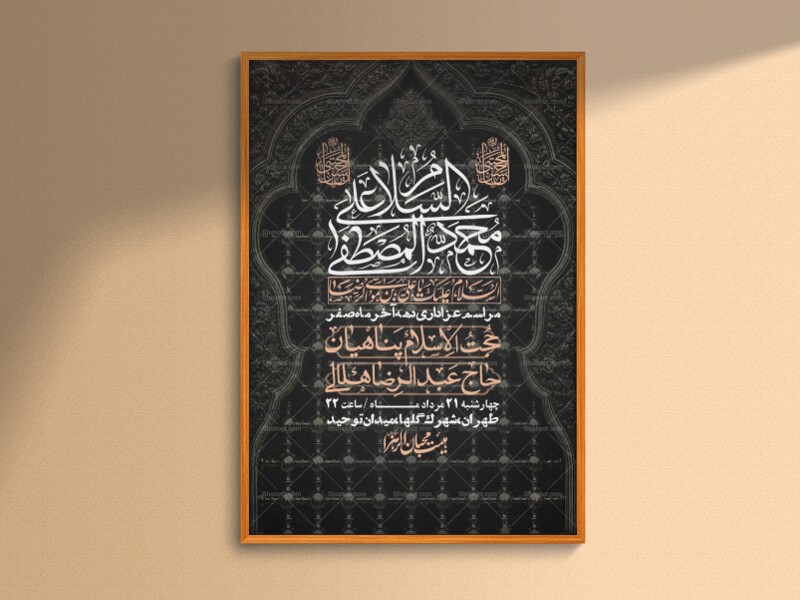 السلام علی
محمد المصطفی
السلام علیک یا علی بن موسی الرضا
مراسم عزاداری دهه آخر ماه صفر
حجت الاسلام پناهیان
حاج عبدالرضا هلالی
چهارشنبه ۲۱ مرداد مــاه / ساعت ۲۲
طهران، شهرک گلها، میدان توحید
هیئت محبان الزهرا